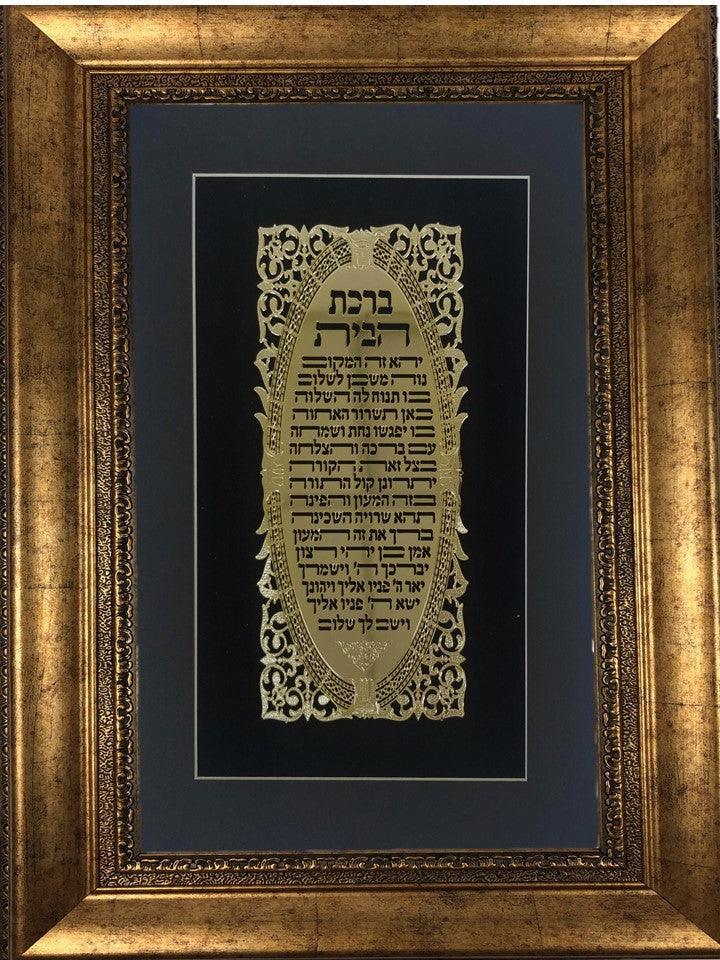 ברכת
הבית
יהא זה המקום
נוה משכן לשלום
בו תנוח לה השלוה
כאן תשרור האחוה
בו יפגשו נחת ושמחה
עם ברכה והצלחה
בצל זאת הקורה
יתרונן קול התורה
בזה המעון והפינה
תהא שרויה השכינה
ברך את זה המעון
אמן כן יהי רצון
יברכך ה' וישמרך
יאר ה' פניו אליך ויחונך
ישא ה' פניו אליך
וישם לך שלום